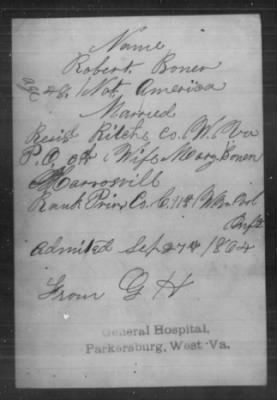 Name
Robert Boner
age 48. Nat. America
Married
Resid Ritche Co. W. Va
P. O. of Wife Mary Boner
Harrosvill
Rank Priv Co. C. 11th W Va Vol
Inft
Admited Sep 27th 1864
From G H
General Hospital,
Parkersburg, West Va.